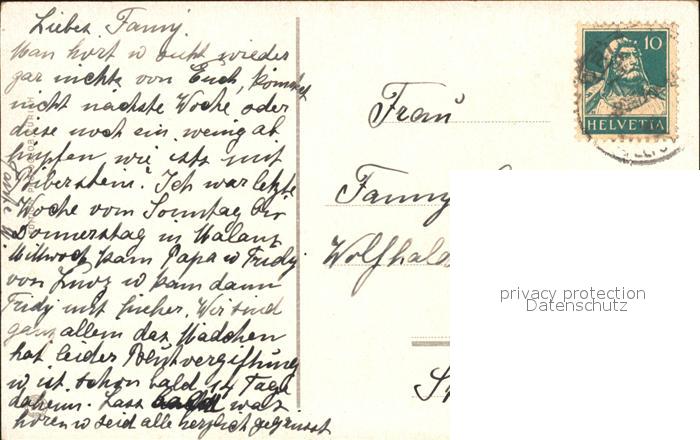 Liebes Fanny.
Man hört u sieht wieder
gar nichts von Euch, kommet
nicht nächste Woche oder
diese noch ein wenig ab
wie ists mit
Biberstein? Ich war letzte
Woche vom Sonntag bis
Donnerstag in Malanz
Mittwoch kam Papa u Fridy
von u kam dann
Fridy mit hieher. Wir sind
ganz allein das Mädchen
hat leider Blutvergiftung
u ist schon bald 14 Tage
daheim. Lass was
hören u seid alle herzlich gegrüsst
Frau
Fanny
Wolfhald
St
10
HELVETIA
privacy protection
Datenschutz